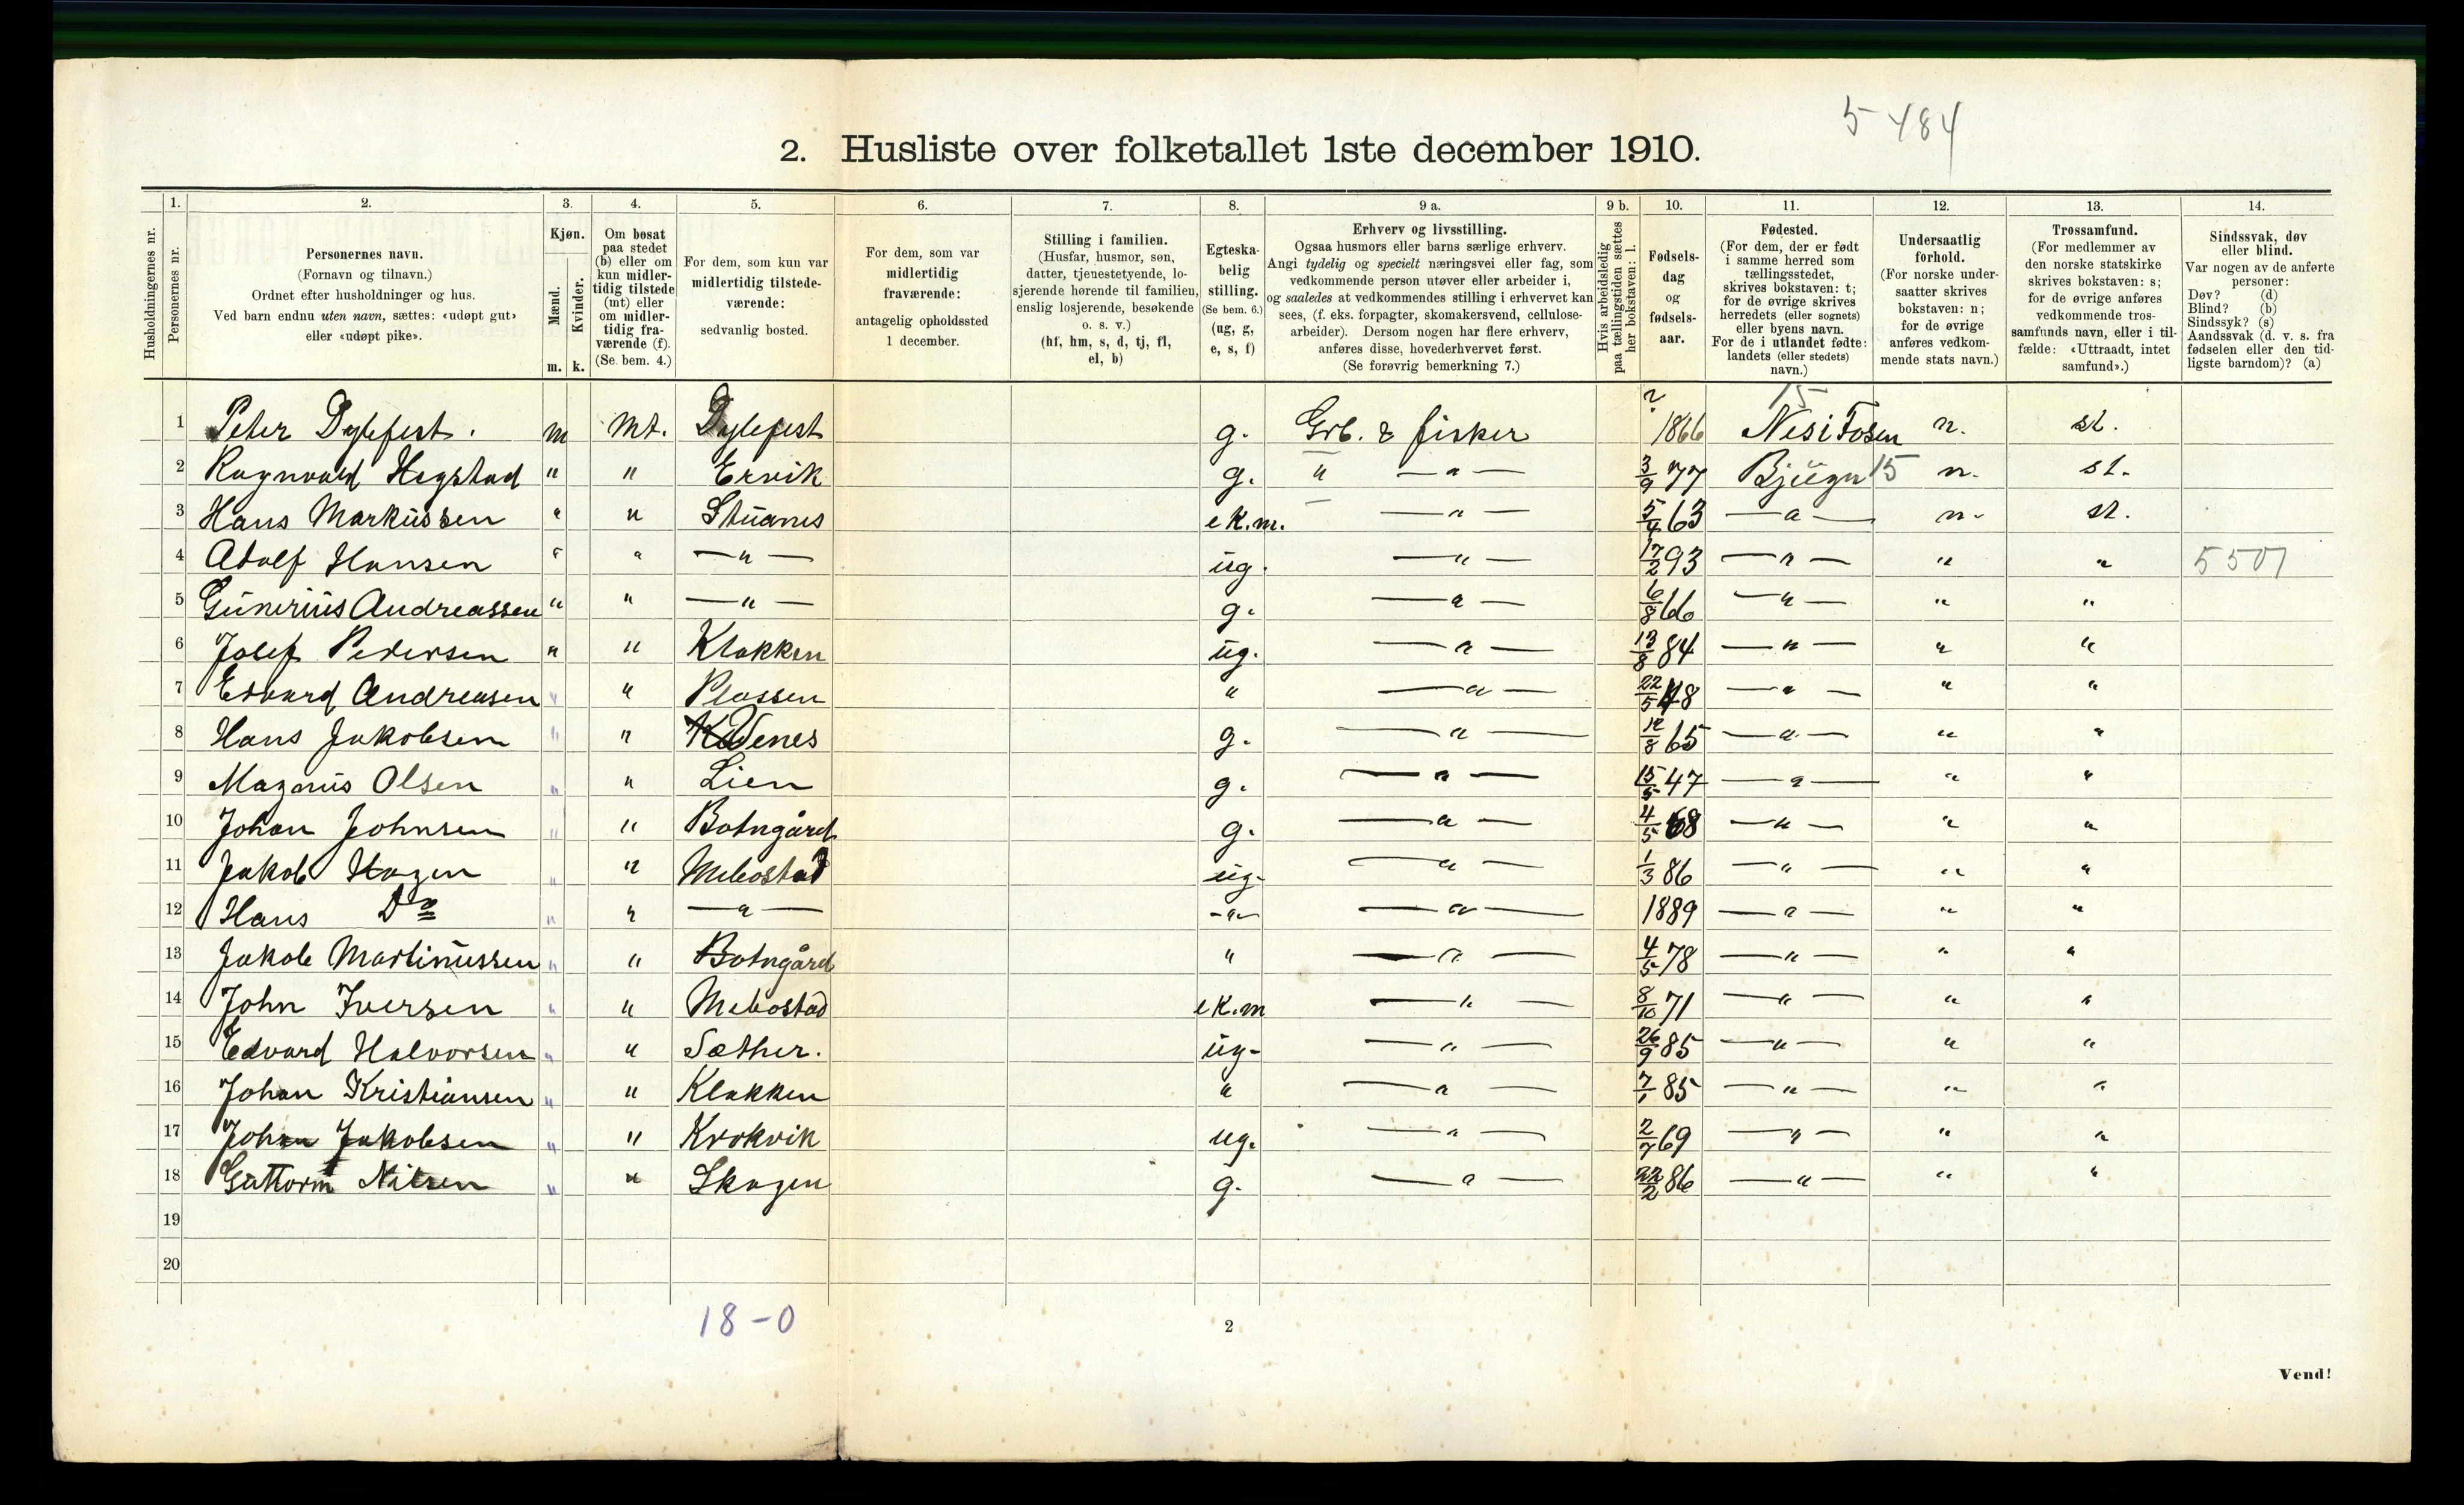 5 484
2. Husliste over folketallet 1ste december 1910.
1. 2. 3. 4. 5. 6. 7. 8. 9 a. 9 b. 10. 11. 12. 13. 14.
Husholdningernes nr.
Personernes nr.
Personernes navn.
(Fornavn og tilnavn.)
Ordnet efter husholdninger og hus.
Ved barn endnu uten navn, sættes: «udøpt gut»
eller «udøpt pike».
Kjøn.
Mænd.
Kvinder.
m. k.
Om bosat
paa stedet
(b) eller om
kun midler-
tidig tilstede
(mt) eller
om midler-
tidig fra-
værende (f).
(Se bem. 4.)
For dem, som kun var
midlertidig tilstede-
værende:
sedvanlig bosted.
For dem, som var
midlertidig
fraværende:
antagelig opholdssted
1 december.
Stilling i familien.
(Husfar, husmor, søn,
datter, tjenestetyende, lo-
sjerende hørende til familien,
enslig losjerende, besøkende
o. s. v.)
(hf, hm, s, d, tj, fl,
el, b)
Egteska-
belig
stilling.
(Se bem. 6.)
(ug, g,
e, s, f)
Erhverv og livsstilling.
Ogsaa husmors eller barns særlige erhverv.
Angi tydelig og specielt næringsvei eller fag, som
vedkommende person utøver eller arbeider i,
og saaledes at vedkommendes stilling i erhvervet kan
sees, (f. eks. forpagter, skomakersvend, cellulose-
arbeider). Dersom nogen har flere erhverv,
anføres disse, hovederhvervet først.
(Se forøvrig bemerkning 7.)
Hvis arbeidsledig
paa tællingstiden sættes
her bokstaven: l.
Fødsels-
dag
og
fødsels-
aar.
Fødested.
(For dem, der er født
i samme herred som
tællingsstedet,
skrives bokstaven: t;
for de øvrige skrives
herredets (eller sognets)
eller byens navn.
For de i utlandet fødte:
landets (eller stedets)
navn.)
Undersaatlig
forhold.
(For norske under-
saatter skrives
bokstaven: n;
for de øvrige
anføres vedkom-
mende stats navn.)
Trossamfund.
(For medlemmer av
den norske statskirke
skrives bokstaven: s;
for de øvrige anføres
vedkommende tros-
samfunds navn, eller i til-
fælde: «Uttraadt, intet
samfund».)
Sindssvak, døv
eller blind.
Var nogen av de anførte
personer:
Døv? (d)
Blind? (b)
Sindssyk? (s)
Aandssvak (d. v. s. fra
fødselen eller den tid-
ligste barndom)? (a)
1 Peter Dylefest. m mt. Dylefest g. Grb. & fisker ? 1866 15 Nes i Fosen n. st.
2 Ragnvald Hegstad " " Ervik g. " — " — 3/9 77 Bjugn 15 n. st.
3 Hans Markussen " " Stuanes e K.m. — " — 5/4 63 — " — n. st.
4 Adolf Hansen " " — " — ug. — " — 17/2 93 — " — " " 5501
5 Gunerius Andreassen " " — " — g. — " — 6/8 66 — " — " "
6 Josef Pedersen " " Klakken ug. — " — 13/8 84 — " — " "
7 Edvard Andreasen " " Plassen " — " — 22/5 48 — " — " "
8 Hans Jakobsen " " Venes g. — " — 12/8 65 — " — " "
9 Magnus Olsen " " Lien g. — " — 15/5 47 — " — " "
10 Johan Johnsen " " Botngård g. — " — 4/5 68 — " — " "
11 Jakob Hagen " " Mebostad ug. — " — 1/3 86 — " — " "
12 Hans Do " " — " — - " - — " — 1889 — " — " "
13 Jakob Martinussen " " Botngård " — " — 4/5 78 — " — " "
14 John Iversen " " Mebostad e K.m — " — 8/10 71 — " — " "
15 Edvard Halvorsen " " Sæther. ug- — " — 26/9 85 — " — " "
16 Johan Kristiansen " " Klakken " — " — 7/1 85 — " — " "
17 Johan Jakobsen " " Krokvik ug. — " — 2/7 69 — " — " "
18 Guttorm Nilsen " " Skagen g. — " — 22/2 86 — " — " "
19
20
18-0
2
Vend!